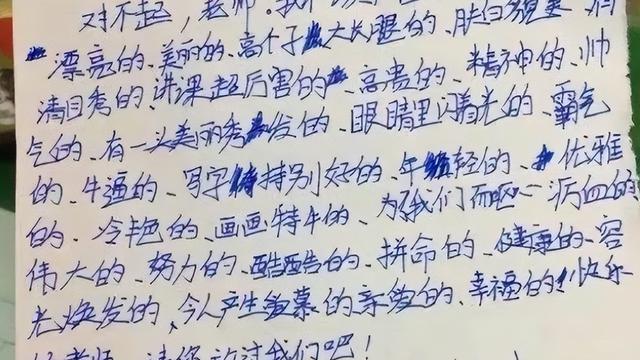 对不起，老师。我
漂亮的、美丽的、高个子大长腿的、肤白貌美
清目秀的、讲课超厉害的、高贵的、精神的、帅
气的、有一头美丽秀发的、眼睛里闪着光的、霸气
的、牛逼的、写字特别好的、年轻的、优雅
的、冷艳的、画画特牛的、为了我们而呕心沥血的
伟大的、努力的、酷酷的、拼命的、健康的、容
光焕发的、令人产生羡慕的亲爱的、幸福的、快乐
老师，请你放过我们吧！